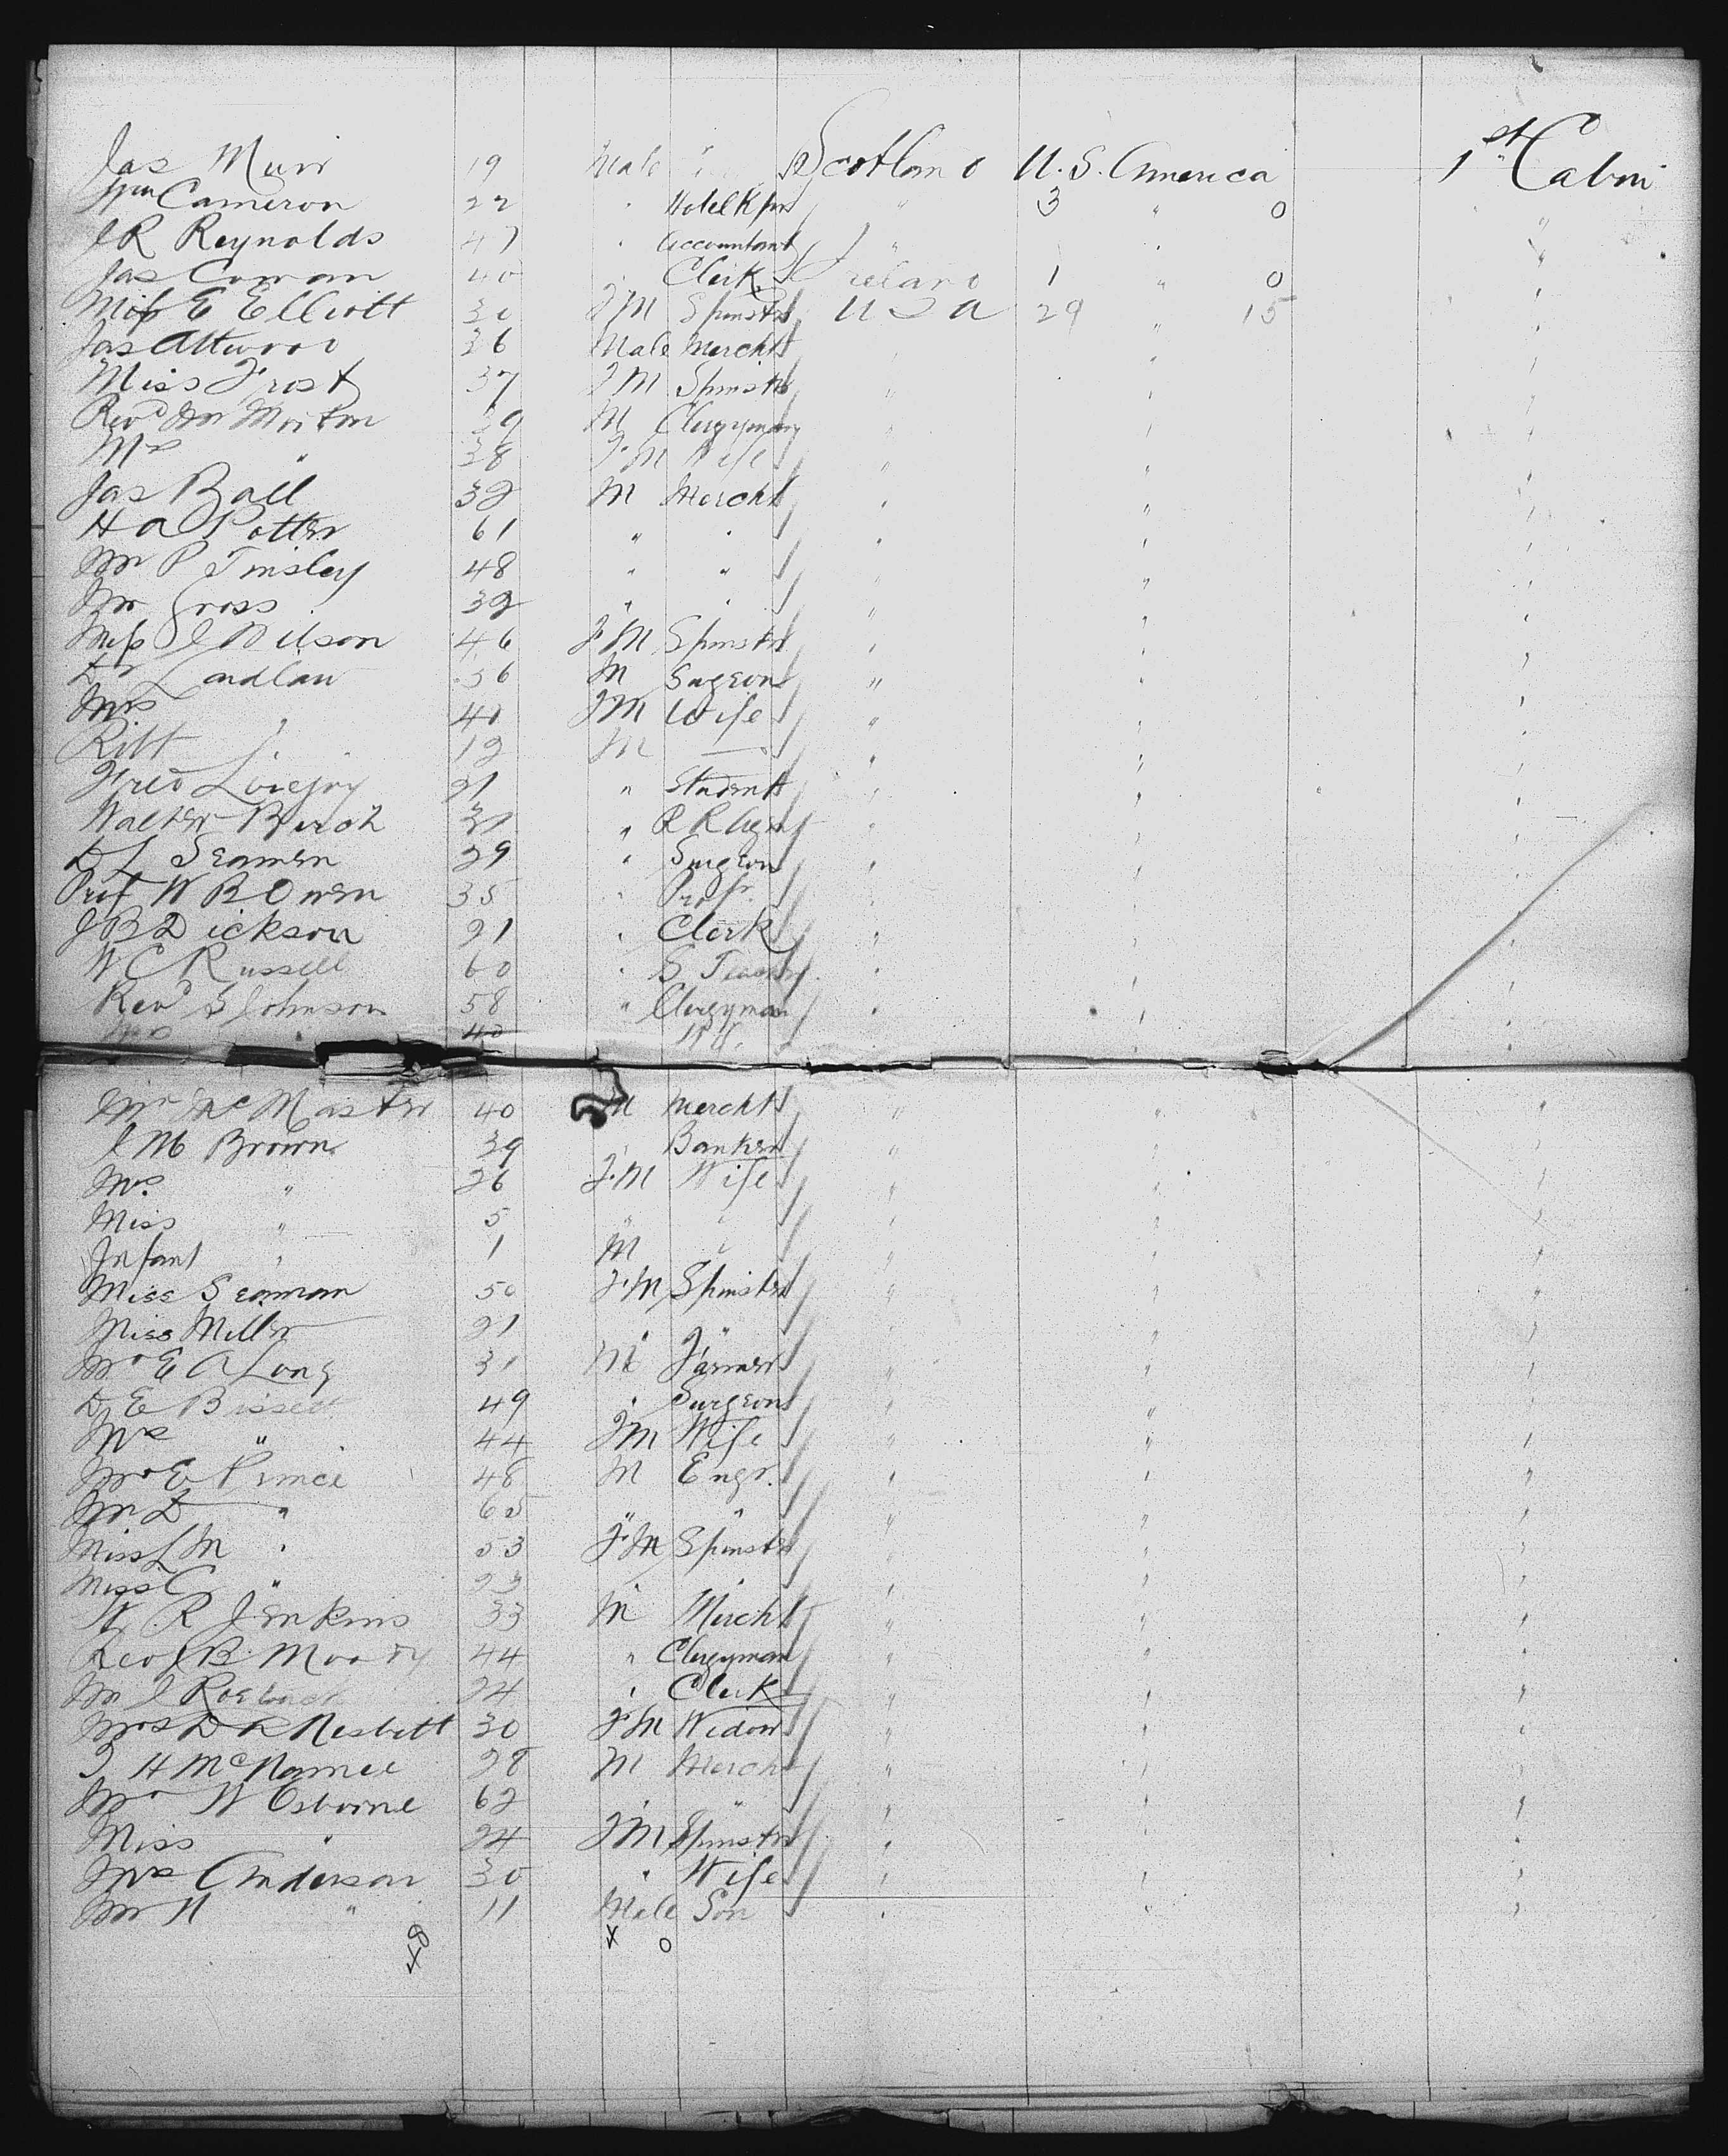 Jas Muir 19 Male " Scotland U.S. America 1st Cabin
Wm Cameron 22 " Hotel Kpr " 3 " 0 "
J R Reynolds 47 " Accountant " " "
Jas Cowan 40 " Clerk Ireland 1 " 0 "
Miss E Elliott 30 FM Spinstr U S A 29 " 15 "
Jas Attwood 36 Male Mercht " " "
Miss Frost 37 FM Spinstr " " "
Revd Wm Morton 39 M Clergyman " " "
Mrs " 38 FM Wife " " "
Jas Ball 32 M Mercht " " "
H A Potter 61 " " " " "
Mr P Tinsley 48 " " " " "
Mr Gross 32 " " " " "
Miss J Wilson 46 FM Spinstr " " "
Dr Laidlaw 56 M Sugeon " " "
Mrs " 40 FM Wife " " "
Robt " 12 M — " " "
Fred Lovejoy 21 " Student " " "
Walter Birch 31 " R R Agen " " "
D L Seamen 29 " Surgeon " " "
Prof W B Owen 35 " Profr " " "
J B Dickson 21 " Clerk " " "
W C Russell 60 " S " " "
Revd S Johnson 58 " Clergyman " " "
Mrs " 40 " "
Mr McMaster 40 M Mercht " " "
J M Brown 39 " Banker " " "
Mrs " 26 FM Wife " " "
Miss " 5 " " " " "
Infant " 1 M " " " "
Miss Seaman 50 FM Spinster " " "
Miss Miller 21 " " " " "
Mr E A Long 31 M Farmer " " "
D E Bissett 49 " Surgeon " " "
Mrs " 44 FM Wife " " "
Mr E Prince 48 M Engr. " " "
Mr D " 65 " " " " "
Miss L M " 53 FM Spinstr " " "
Miss C " 23 " " " " "
W R Jenkins 33 M Mercht " " "
Rev J B Moody 44 " Clergyman " " "
Mr J 24 " Clerk " " "
Mrs D A Nesbitt 30 FM Widow " " "
J H McNamee 28 M Merch " " "
Mr W Osborne 62 " " " " "
Miss " 24 FM Spinstr " " "
Mrs Anderson 30 " Wife " " "
Mr N " 11 Male Son " " "